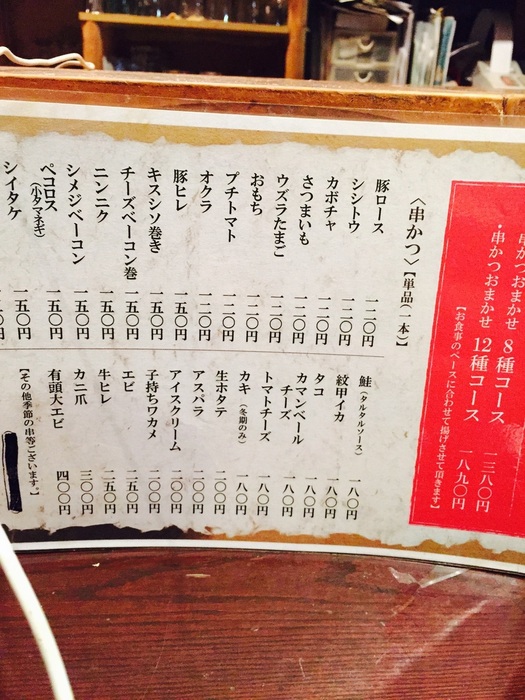 串かつおまかせ 8種コース 一三八〇円
・串かつおまかせ 12種コース 一八九〇円
【お食事のペースに合わせて揚げさせて頂きます】
〈串かつ〉【単品(一本)】
豚ロース 一二〇円
シシトウ 一二〇円
カボチャ 一二〇円
さつまいも 一二〇円
ウズラたまご 一二〇円
おもち 一二〇円
プチトマト 一二〇円
オクラ 一二〇円
豚ヒレ 一五〇円
キスシソ巻き 一五〇円
チーズベーコン巻 一五〇円
ニンニク 一五〇円
シメジベーコン 一五〇円
ペコロス(小タマネギ) 一五〇円
シイタケ 一五〇円
鮭(タルタルソース) 一八〇円
紋甲イカ 一八〇円
タコ 一八〇円
カマンベールチーズ 一八〇円
トマトチーズ 一八〇円
カキ(冬期のみ) 一八〇円
生ホタテ 二〇〇円
アスパラ 二〇〇円
アイスクリーム 二〇〇円
子持ちワカメ 二〇〇円
エビ 二五〇円
牛ヒレ 二五〇円
カニ爪 三〇〇円
有頭大エビ 四〇〇円
【その他季節の串等ございます。】